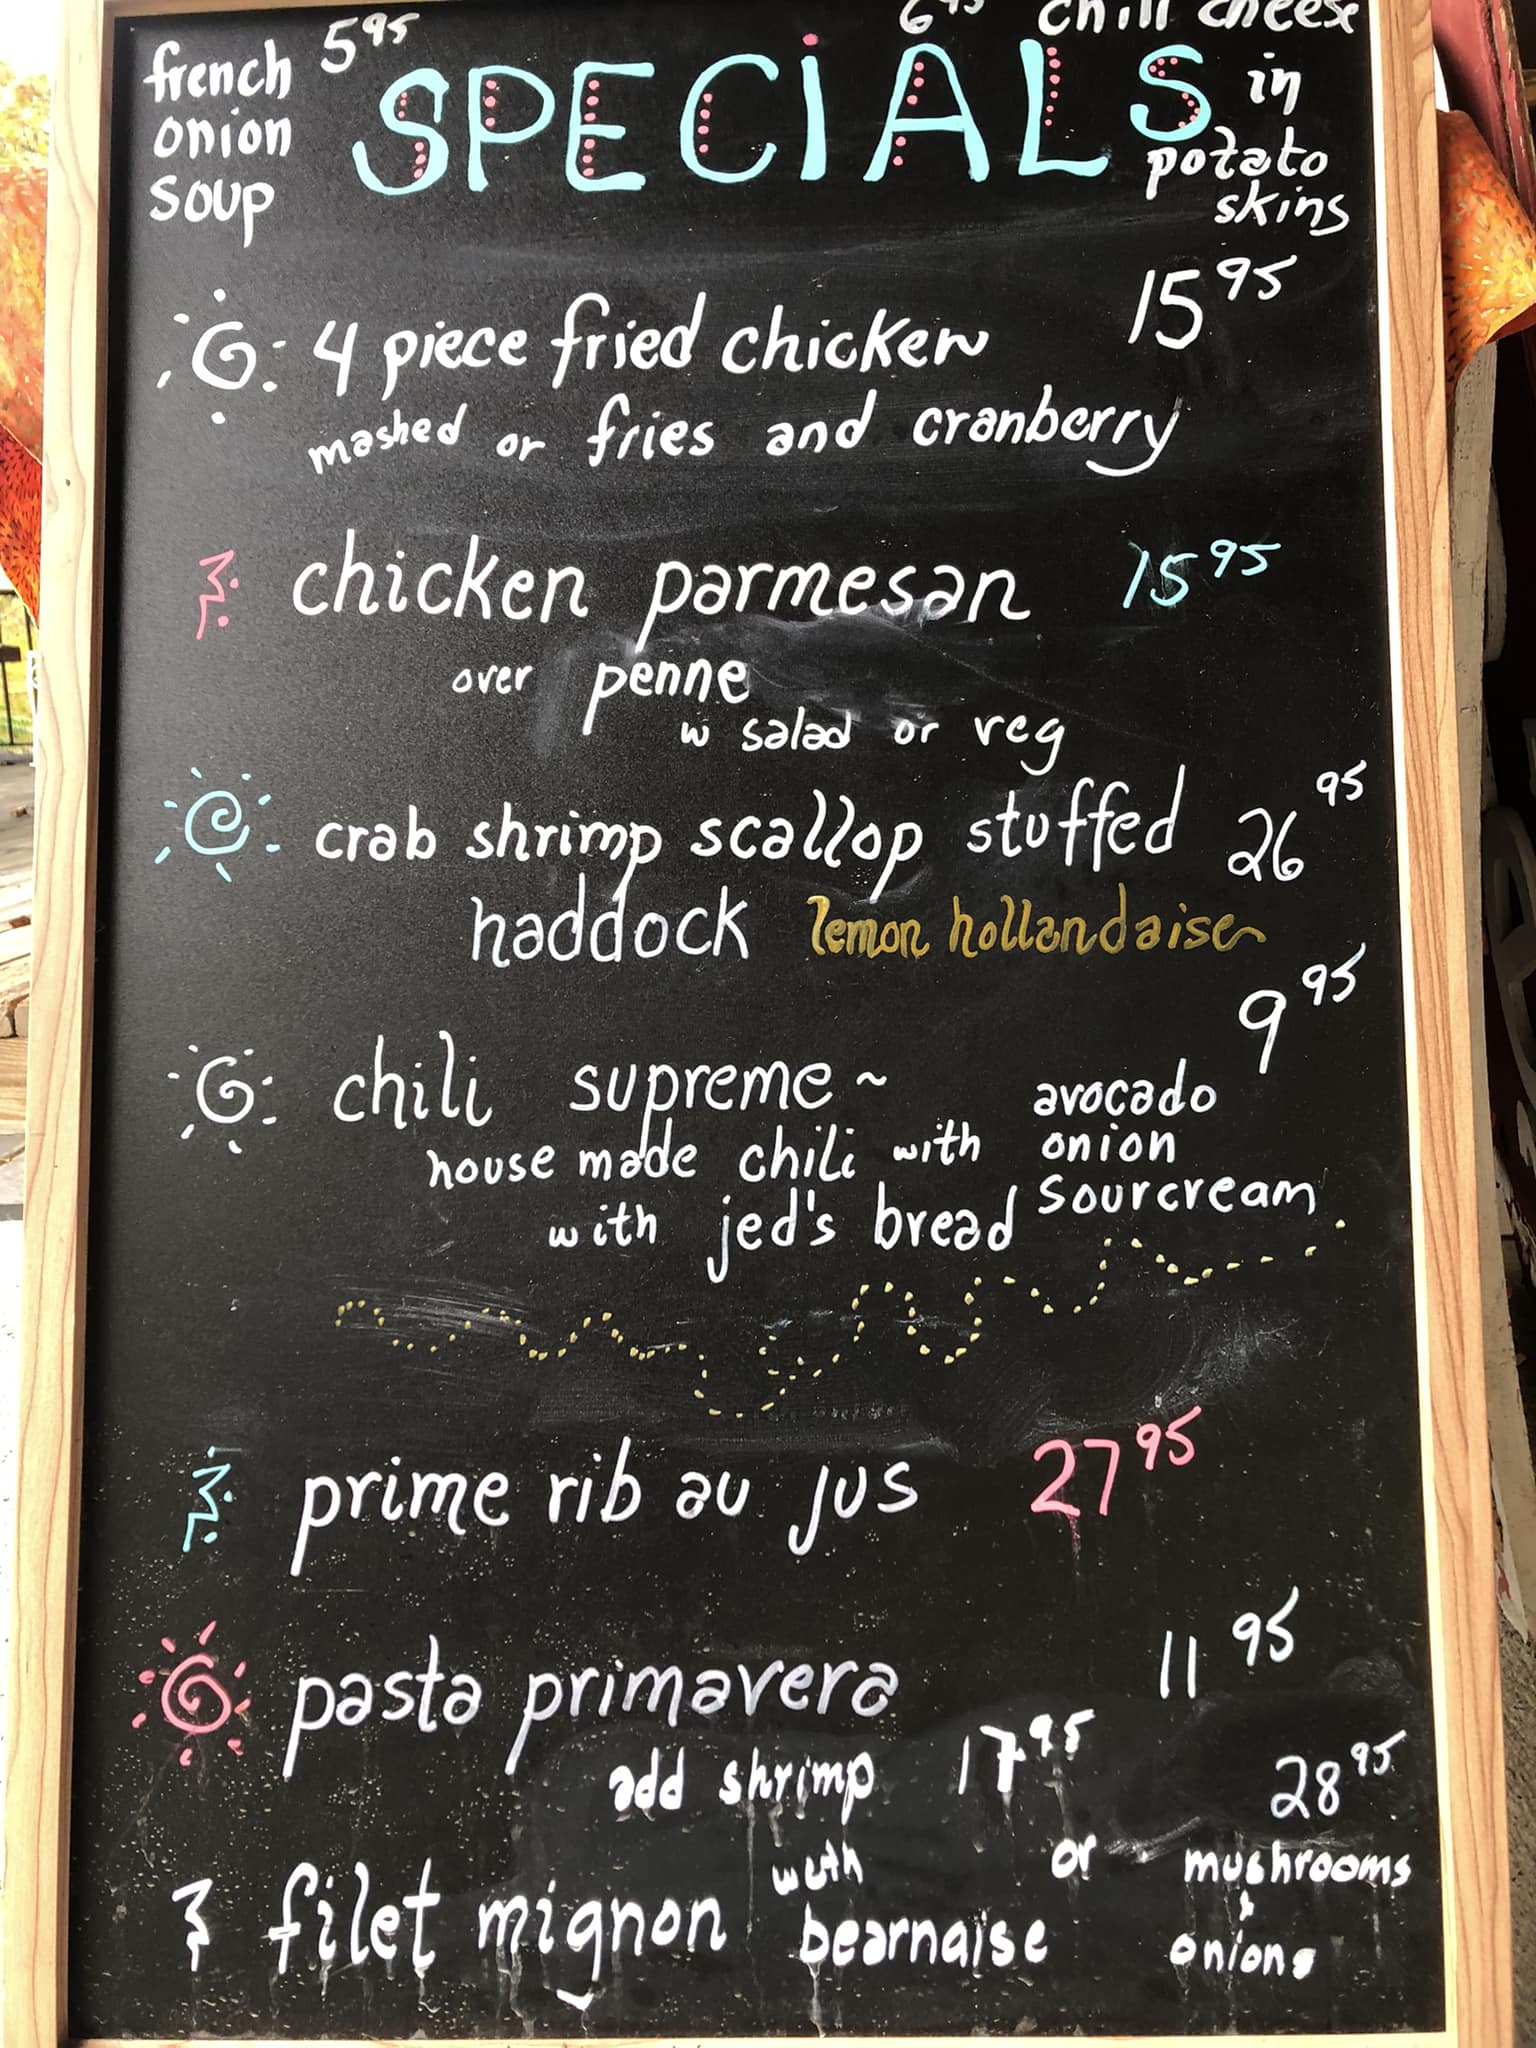 french 5 95
onion
soup
SPECiALS
6 95 chili cheese
in
potato
skins
4 piece fried chicken 15 95
mashed or fries and cranberry
chicken parmesan 15 95
over penne
w salad or veg
crab shrimp scallop stuffed 26 95
haddock lemon hollandaise
9 95
chili supreme ~ avocado
house made chili with onion
with jed's bread sourcream
prime rib au jus 27 95
pasta primavera 11 95
add shrimp 17 95
28 95
filet mignon with bearnaise or mushrooms
+
onions